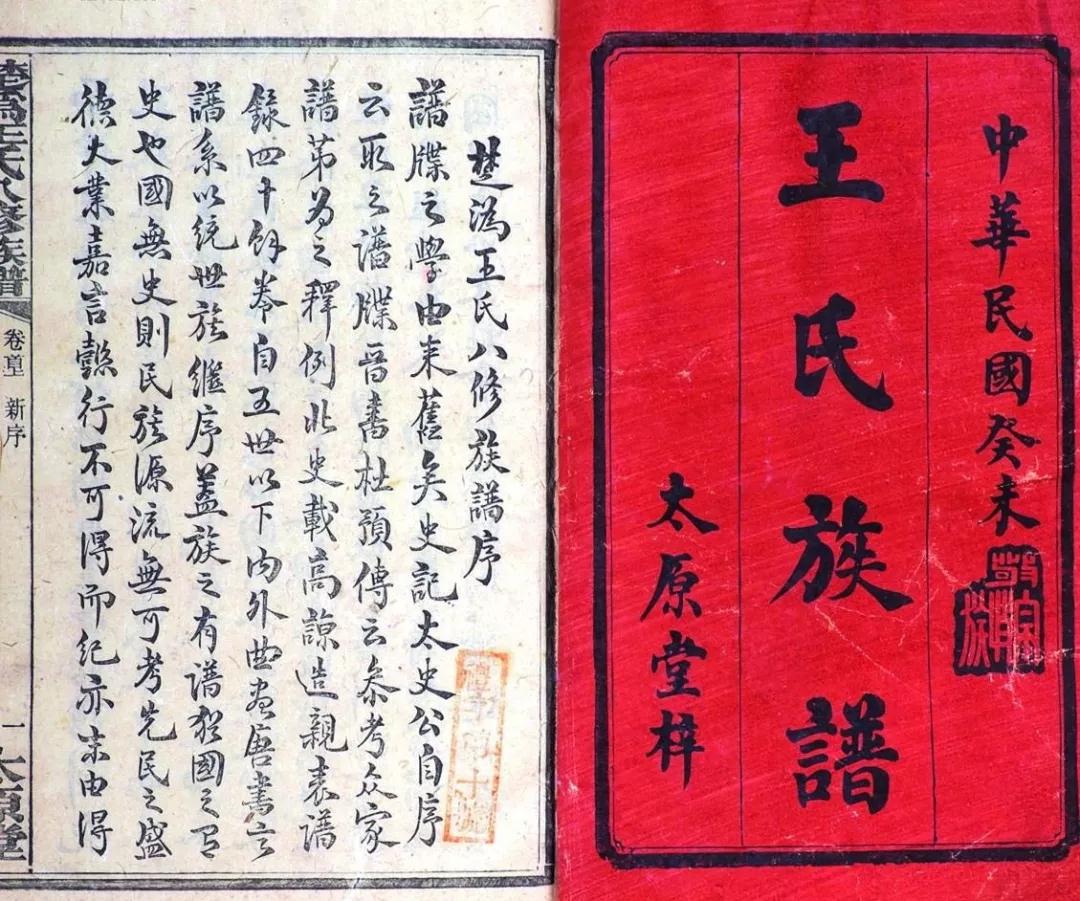 中華民國癸未
王氏族譜
太原堂梓
楚溈王氏八修族譜序
譜牒之學由来舊矣史記太史公自序
云取之譜牒晋書杜預傳云叅考众家
譜第為之釋例北史載高諒造親表譜
錄四十餘卷自五世以下內外曲盡唐書言
譜系以統世族继序蓋族之有譜猶國之有
史也國無史則民族源流無可考先民之盛
德大業嘉言懿行不可得而紀亦末由得
楚溈王氏八修族譜 卷首 新序 一 太原堂